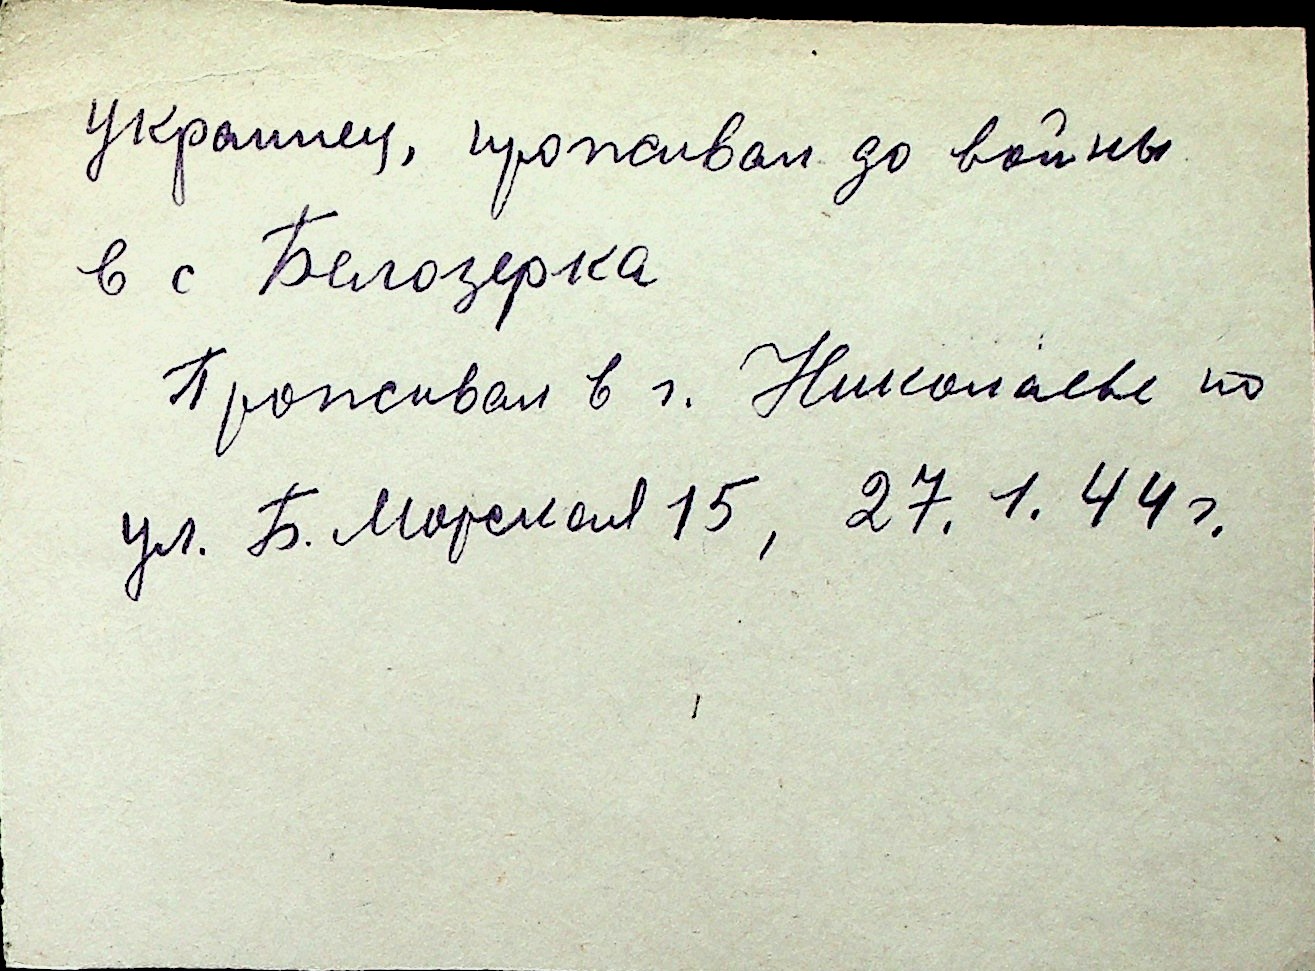 украинец, проживал до войны
в с Белозерка
Проживал в г. Николаеве по
ул. Б. Морская 15, 27. 1. 44 г.